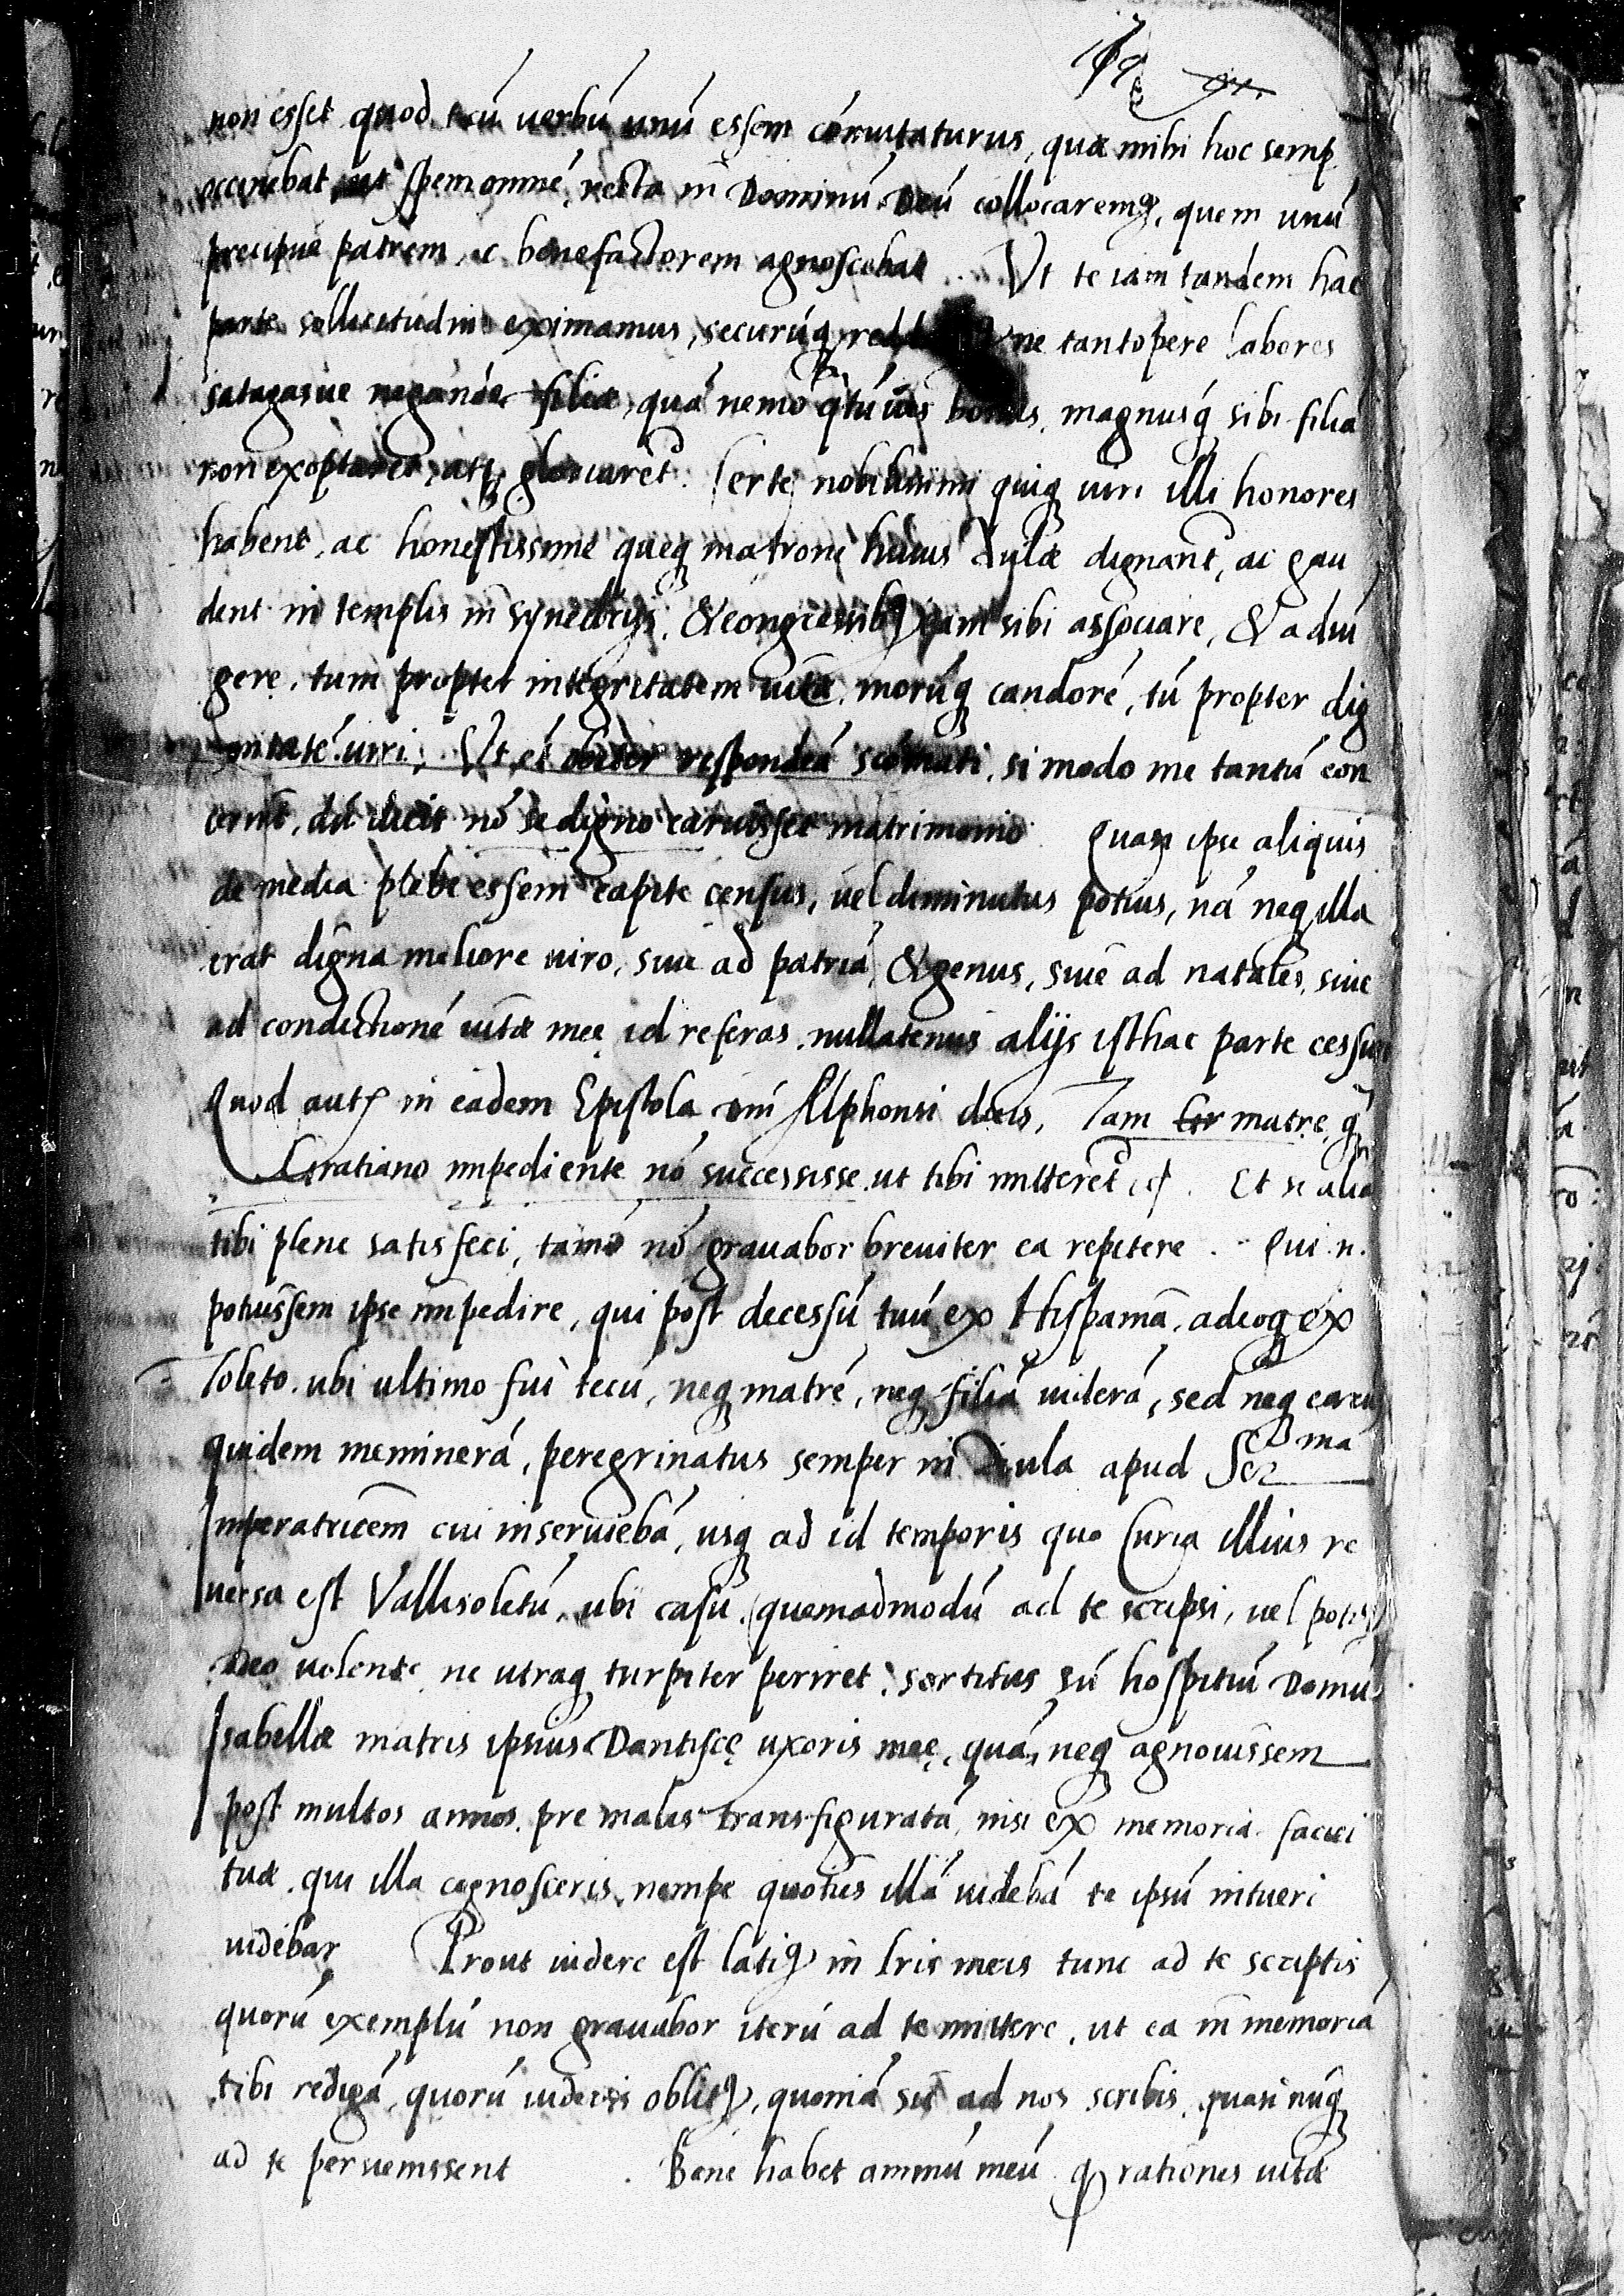 non esset quod tecú uerbú unú essem cómutaturus, quæ mihi hoc semp
occinebat, ut spem omné recta in Dominú Deú collocaremq, quem unú
precipue patrem, ac benefactorem agnoscebat. Vt te iam tandem hac
parte sollicitudine eximamus, securúq ne tantopere labores
satagasue negande filiæ, quá nemo qtúuis bonus, magnusq́ sibi filiá
non exoptaret, atq gloriaret. Certe nobilissimi quiq uiri illi honores
habent, ac honestissime queq matrone huius Aulæ dignant, ac gau
dent in templis in synedrijs, & congressibq eam sibi associare, & adiú
gere, tum propter integritatem uitæ, morúq candoré, tú propter dig
nitaté uiri. Vt et obiter respondeá scomati, si modo me tantú con
cernit, dú dicis nó se digno caruisset matrimonio. Quasi ipse aliquis
de media plebe essem capite census, uel diminutus potius, ná neq illa
erat digna meliore uiro, siue ad patriá, & genus, siue ad natales, siue
ad condictioné uitæ meę id referas, nullatenus alijs isthac parte cessuri
Quod aut in eadem Epistola Alphonsi dicis, Tam matre, q
Gratiano impediente nó successisse, ut tibi mitteret Et si alia
tibi plene satisfeci, tamé nó grauabor breuiter ea repetere. Qui n.
potuissem ipse impedire, qui post decessú tuú ex Hispania, adeoq ex
Toleto, ubi ultimo fui tecú, neq matré, neq filiá uiderá, sed neq earú
quidem meminerá, peregrinatus semper in Aula apud Ser ma
Imperatricem cui inseruiebá, usq ad id temporis quo Curia illius re
uersa est Vallisoletú, ubi casu, quemadmodú ad te scripsi, uel potiq
Deo uolente, ne utraq turpiter periret, sortitus sú hospitiú Domú
Isabellæ matris ipsius Dantiscę uxoris meę, quá, neq agnouissem
post multos annos, pre malis transfiguratá, nisi ex memoria faciei
tuæ, qui illa cognosceris, nempe quoties illá uidebá te ipsú intueri
uidebar Prout uidere est latiq in lris meis tunc ad te scriptis
quorú exemplú non grauabor iterú ad te mittere, ut ea in memoriá
tibi redigá, quorú uideris oblitq, quoniá sic ad nos scribis, quasi núq
ad te peruenissent. Bene habet animú meú q rationes uitæ